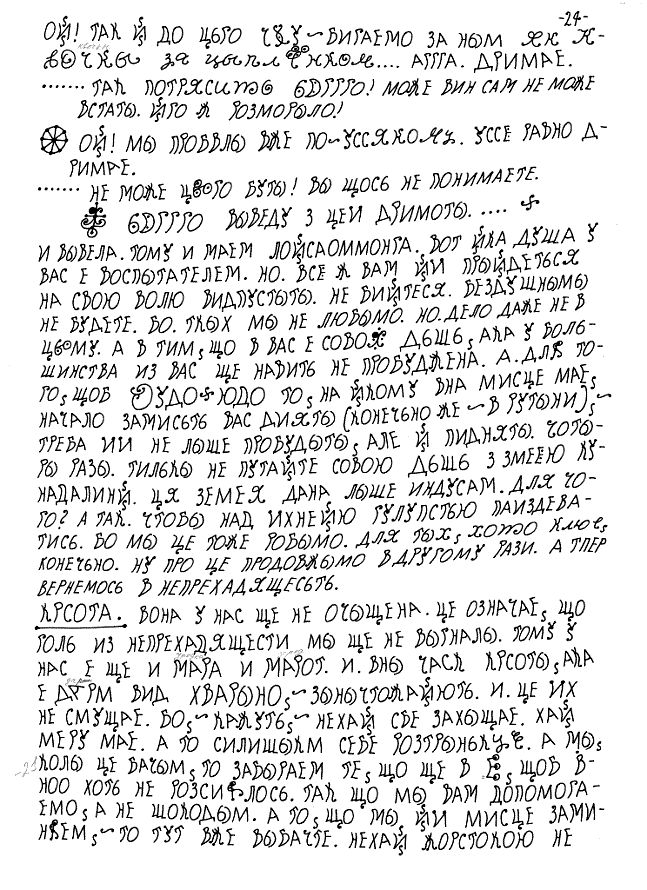 -24-
ОЙ! ТАК Й ДО ЦЬОГО ВИТАЕМО ЗА НЫМ ЯК К-
ВОЧКЫ ЗА ЦЫПЛ НКОМ.... АГГА. ДРИМАЕ.
....... ТАК ПОТРЯСИТЬ ЕГГГО! МОЖЕ ВИН САМ НЕ МОЖЕ
ВСТАТЫ. ЙГО Ж РОЗМОРЫЛО!
ОЙ! МЫ ПРОБВЛЫ ВЖЕ ПО~УССЯКОМУ. УССЕ РАВНО Д-
РИМАЕ.
....... НЕ МОЖЕ ЦЬОГО БУТЫ! ВЫ ЩОСЬ НЕ ПОНИМАЕТЕ.
ВЫВЕДУ З ЦЕИ ДРИМОТЫ.....
И ВЫВЕЛА. ТОМУ И МАЕМ ЛОЙСАОММОНГА. ВОТ ЙКА ДУША У
ВАС Е ВОСПЫТАТЕЛЕМ. НО. ВСЕ Ж ВАМ ЙИ ПРЫЙДЕТЬСЯ
НА СВОЮ ВОЛЮ ВИДПУСТЫТЫ. НЕ БИЙТЕСЯ. БЕЗДУШНЫМЫ
НЕ БУДЕТЕ. БО. ТКЫХ МЫ НЕ ЛЮБЫМО. НО. ДЕЛО ДАЖЕ НЕ В
ЦЬОМУ. А В ТИМ, ЩО В ВАС Е СОВОЯ ДЫШЬ, АКА У БОЛЬ-
ШИНСТВА ИЗ ВАС ЩЕ НАВИТЬ НЕ ПРОБУДЖЕНА. А. ДЛЯ ТО-
ГО, ЩОБ ТО, НА ЙКОМУ ВНА МИСЦЕ МАЕ,
НАЧАЛО ЗАМИСЬТЬ ВАС ДИЯТЫ (КОНЕЧЬНО ЖЕ ~ В РУТЫНИ),~
ТРЕВА ИИ НЕ ЛЫШЕ ПРОБУДЫТЫ, АЛЕ Й ПИДНЯТЫ. ЧОТЫ-
РЫ РАЗЫ. ТИЛЬКЫ НЕ ПУТАЙТЕ СОВОЮ ДЫШЬ З ЗМЕЕЮ КУ-
НАДАЛИНЙ. ЦЯ ЗЕМЕЯ ДАНА ЛЫШЕ ИНДУСАМ. ДЛЯ ЧО-
ГО? А ТАК. ЧТОБЫ НАД ИХНЕЙЮ ГУЛУПСТЬЮ ПАИЗДЕВА-
ТИСЬ. БО МЫ ЦЕ ТОЖЕ РОБЫМО. ДЛЯ ТЫХ, ХОТО КЛЮЕ,
КОНЕЧЬНО. НУ ПРО ЦЕ ПРОДОВЖЫМО В ДРУГОМУ РАЗИ. А ТПЕР
ВЕРНЕМОСЬ В НЕПРЕХАДЯЩЕСЬТЬ.
КРСОТА. ВОНА У НАС ЩЕ НЕ ОЧЫЩЕНА. ЦЕ ОЗНАЧАЕ, ЩО
ГОЛЬ ИЗ НЕПРЕХАДЯЩЕСТИ МЫ ЩЕ НЕ ВЫГНАЛЫ. ТОМУ У
НАС Е ЩЕ И МАРА И МАРОТ. И. ВНЫ ЧАСК КРСОТЫ, АКА
Е ВИД ХВАРЫНО,~ЗЫНЫЧТОЖАЙЮТЬ. И. ЦЕ ИХ
НЕ СМУЩАЕ. БО,~КАЖУТЬ,~НЕХАЙ СВЕ ЗАХЫЩАЕ. ХАЙ
МЕРУ МАЕ. А ТО СИЛИШЫКМ СЕБЕ А МЫ,
КОЛЫ ЦЕ БАЧЫМ, ТО ЗАБЫРАЕМ ТЕ, ЩО ЩЕ В Е, ЩОБ В-
НОО ХОТЬ НЕ РОЗСИ ЛОСЬ. ТАК ЩО МЫ ВАМ ДОПОМОГА-
ЕМО, А НЕ ШКОДЫМ. А ТО, ЩО МЫ ЙИ МИСЦЕ ЗАМИ-
НЯЕМ,~ТО ТУТ ВЖЕ ВЫБАЧТЕ. НЕХАЙ ЖОРСТОКОЮ НЕ